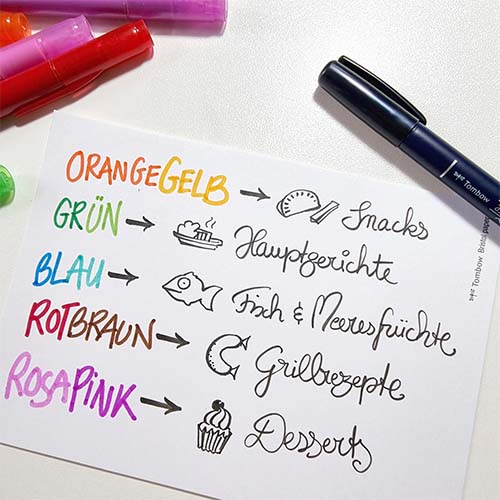 ORANGEGELB → Snacks
GRÜN → Hauptgerichte
BLAU → Fisch & Meeresfrüchte
ROTBRAUN → Grillrezepte
ROSAPINK → Desserts
Tombow
Tombow Bristol paper